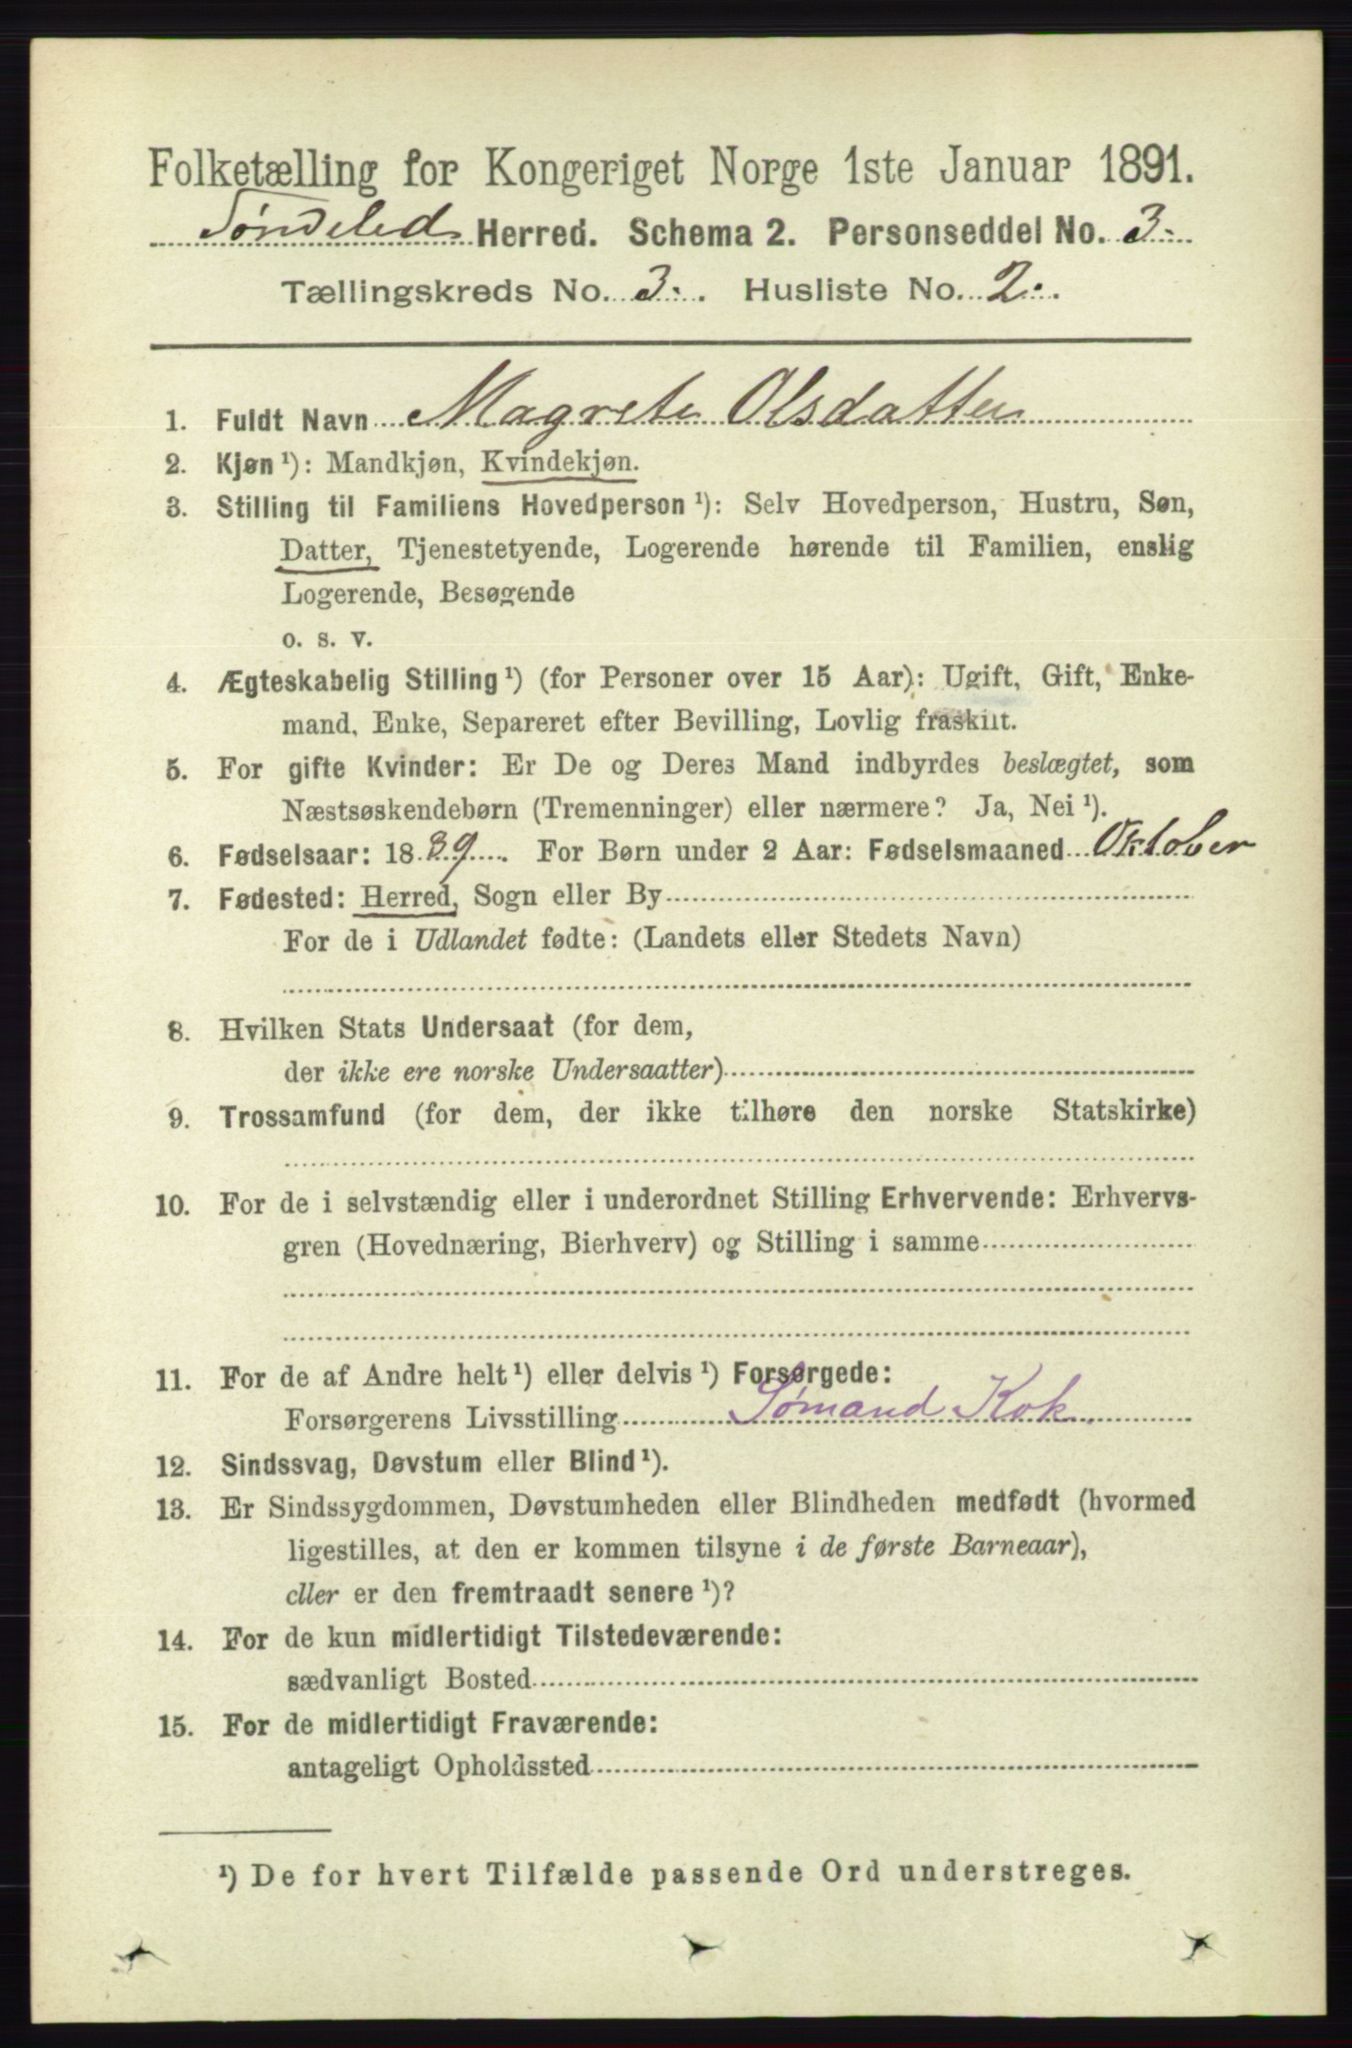 Folketælling for Kongeriget Norge 1ste Januar 1891.
Søndeled Herred. Schema 2. Personseddel No. 3.
Tællingskreds No. 3. Husliste No. 2.
1. Fuldt Navn Magrete Olsdatter
2. Kjøn ¹): Mandkjøn, Kvindekjøn.
3. Stilling til Familiens Hovedperson ¹): Selv Hovedperson, Hustru, Søn,
Datter, Tjenestetyende, Logerende hørende til Familien, enslig
Logerende, Besøgende
o. s. v.
4. Ægteskabelig Stilling ¹) (for Personer over 15 Aar): Ugift, Gift, Enke-
mand, Enke, Separeret efter Bevilling, Lovlig fraskilt.
5. For gifte Kvinder: Er De og Deres Mand indbyrdes beslægtet, som
Næstsøskendebørn (Tremenninger) eller nærmere? Ja, Nei ¹).
6. Fødselsaar: 1889. For Børn under 2 Aar: Fødselsmaaned Oktober
7. Fødested: Herred, Sogn eller By
For de i Udlandet fødte: (Landets eller Stedets Navn)
8. Hvilken Stats Undersaat (for dem,
der ikke ere norske Undersaatter)
9. Trossamfund (for dem, der ikke tilhøre den norske Statskirke)
10. For de i selvstændig eller i underordnet Stilling Erhvervende: Erhvervs-
gren (Hovednæring, Bierhverv) og Stilling i samme
11. For de af Andre helt ¹) eller delvis ¹) Forsørgede:
Forsørgerens Livsstilling Sømand Kok.
12. Sindssvag, Døvstum eller Blind ¹).
13. Er Sindssygdommen, Døvstumheden eller Blindheden medfødt (hvormed
ligestilles, at den er kommen tilsyne i de første Barneaar),
eller er den fremtraadt senere ¹)?
14. For de kun midlertidigt Tilstedeværende:
sædvanligt Bosted
15. For de midlertidigt Fraværende:
antageligt Opholdssted
¹) De for hvert Tilfælde passende Ord understreges.